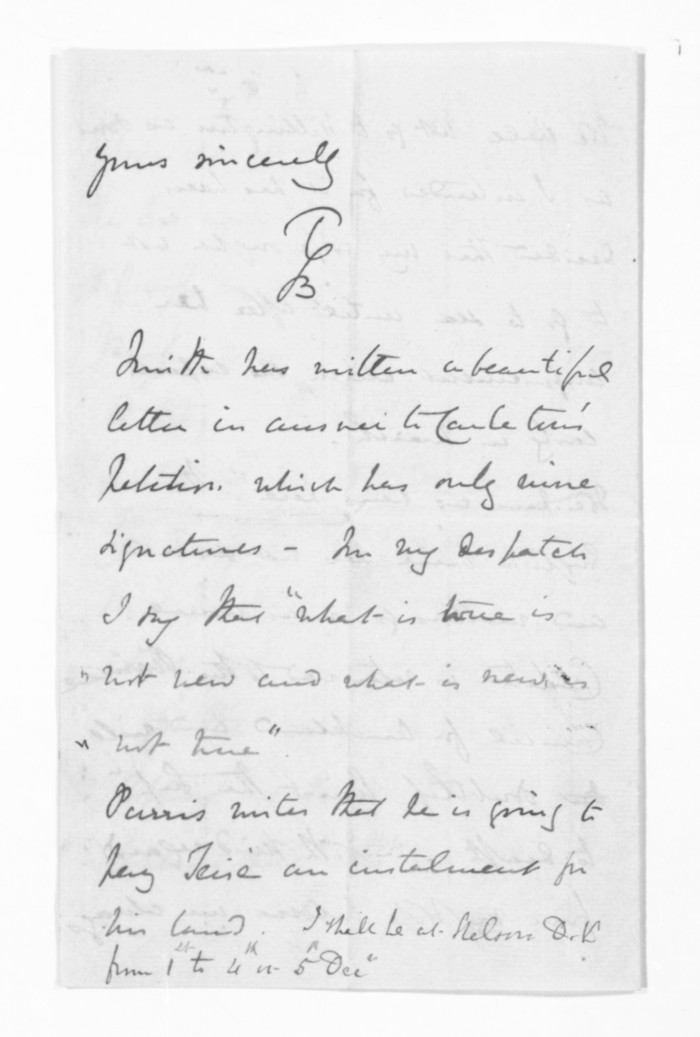 Yours sincerely
TGB
Smith has written a beautiful
letter in answer to Carleton's
petition. which has only nine
signatures - In my Despatch
I say that "what is true is
"not new and what is new is
"not true".
Parris writes that he is going to
pay Teira an instalment for
his land. I shall be at Nelson D.V.
from 1st to 4th or 5th Decr